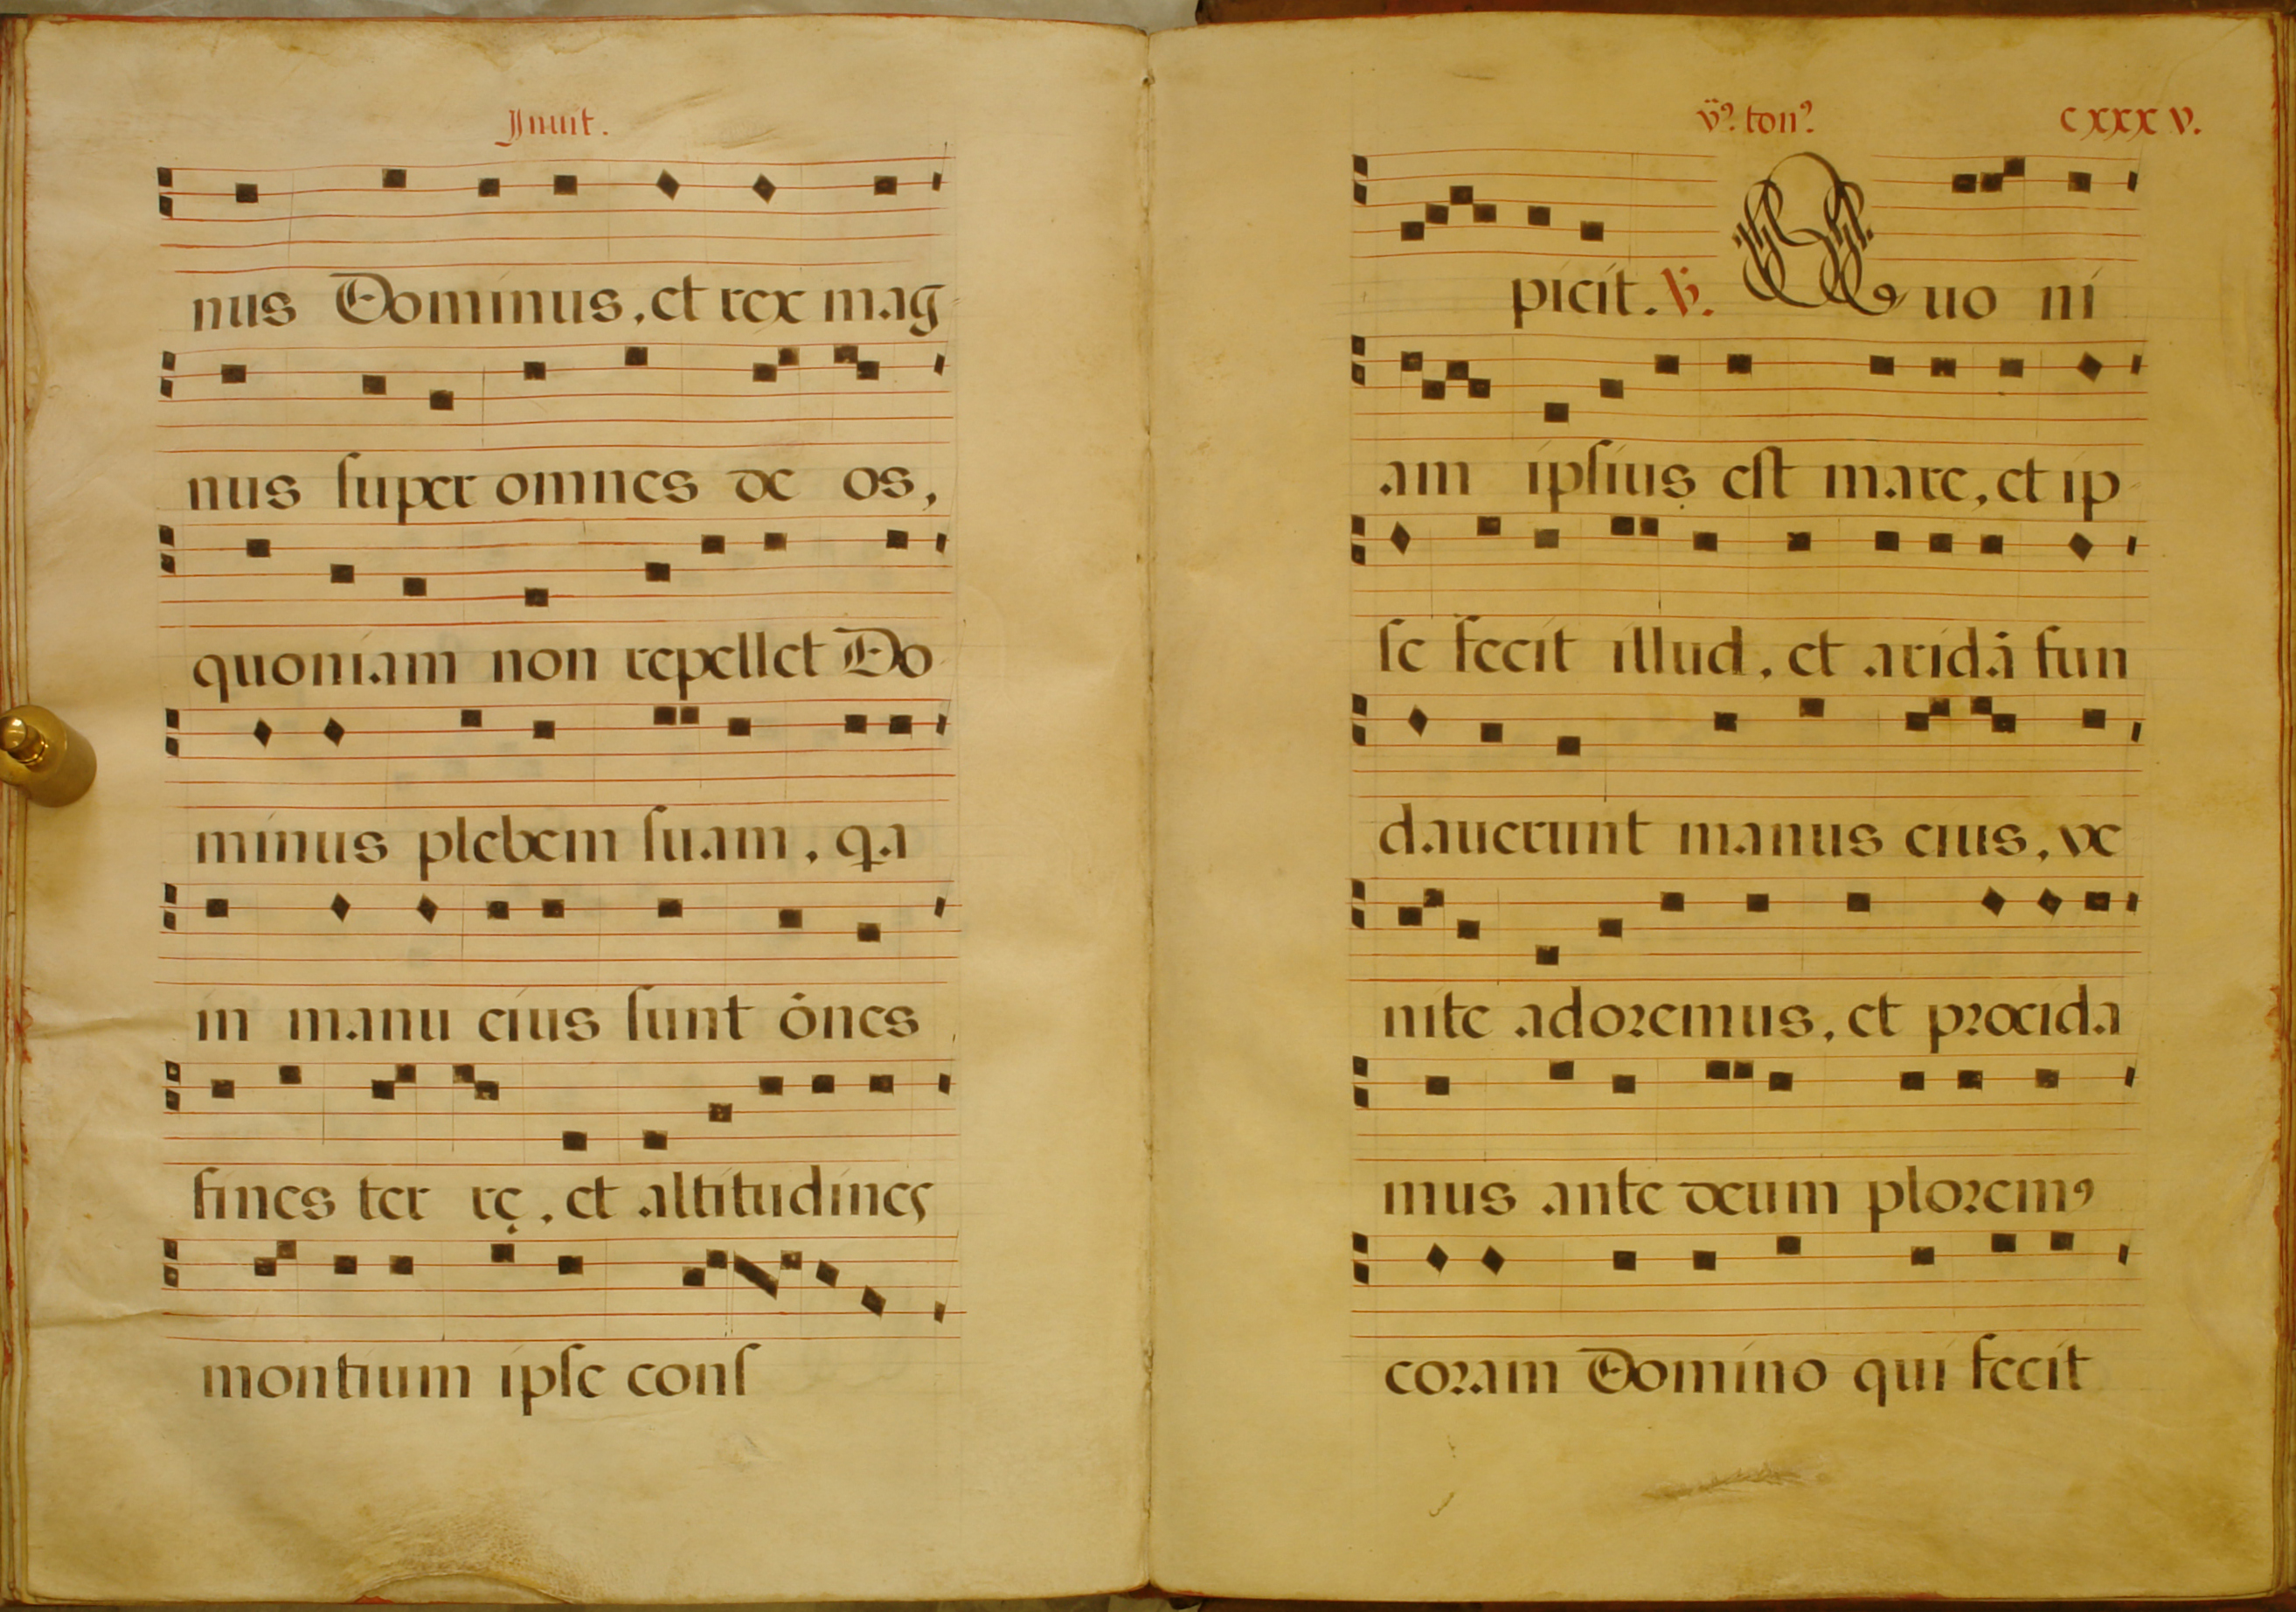 Jnuit.
nus Dominus, et rex mag
nus ſuper omnes de os,
quoniam non repellet Do
minus plebem ſuam, qa
in manu eius ſunt o͂nes
fines ter rę, et altitudines
montium ipſe conſ
v̈ꝰ. tonꝰ. CXXXV.
picit. ℣. Quo ni
am ipſius eſt mare, et ip
ſe fecit illud, et aridã fun
dauerunt manus eius, ve
nite adoꝛemus, et pꝛocida
mus ante deum ploꝛemꝰ
coꝛam Domino qui fecit